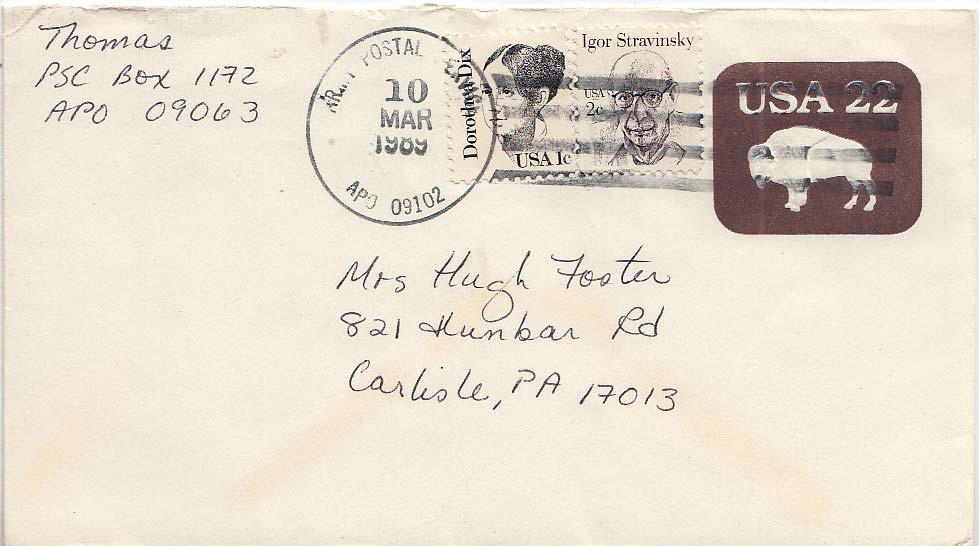 Thomas
PSC Box 1172
APO 09063
ARMY POSTAL SERVICE
10
MAR
1989
APO 09102
Dorothea Dix
USA 1c
Igor Stravinsky
USA
2c
USA 22
Mrs Hugh Foster
821 Hunbar Rd
Carlisle, PA 17013